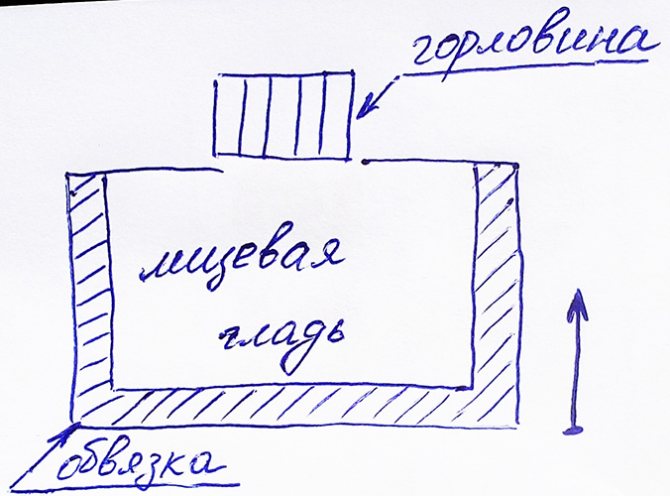 горловина
лицевая
гладь
обвязка